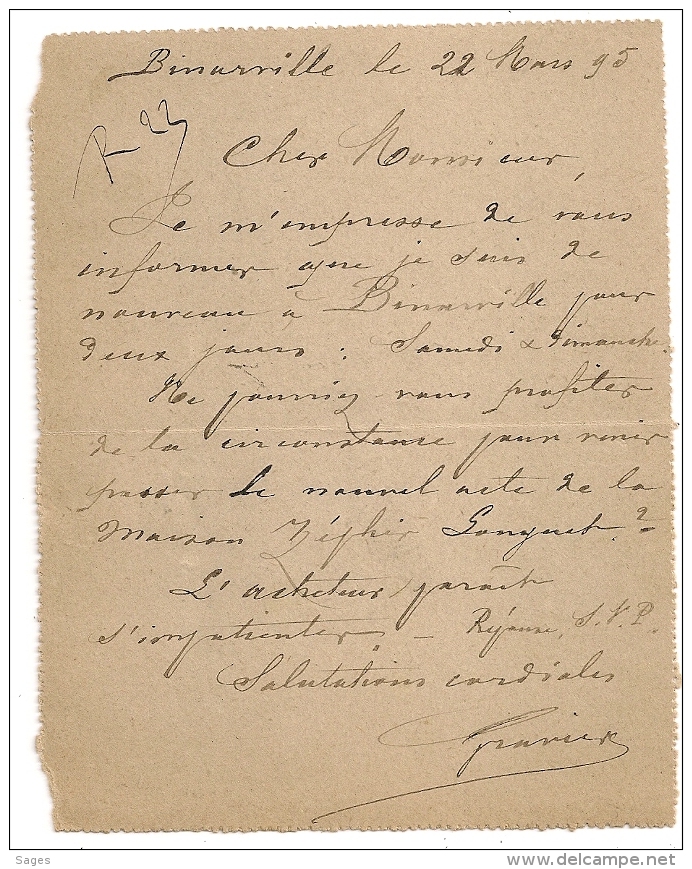 Binarville le 22 Mars 95
R 22
Cher Monsieur,
Je m'empresse de vous
informer que je suis de
nouveau à Binarville pour
deux jours : Samedi & Dimanche.
Ne pourriez vous profiter
de la circonstance pour venir
passer le nouvel acte de la
Maison Zéphir Gouguet ?
L'acheteur paraît
s'impatienter. — Réponse, S.V.P.
Salutations cordiales
Gravier
Sages
www.delcampe.net